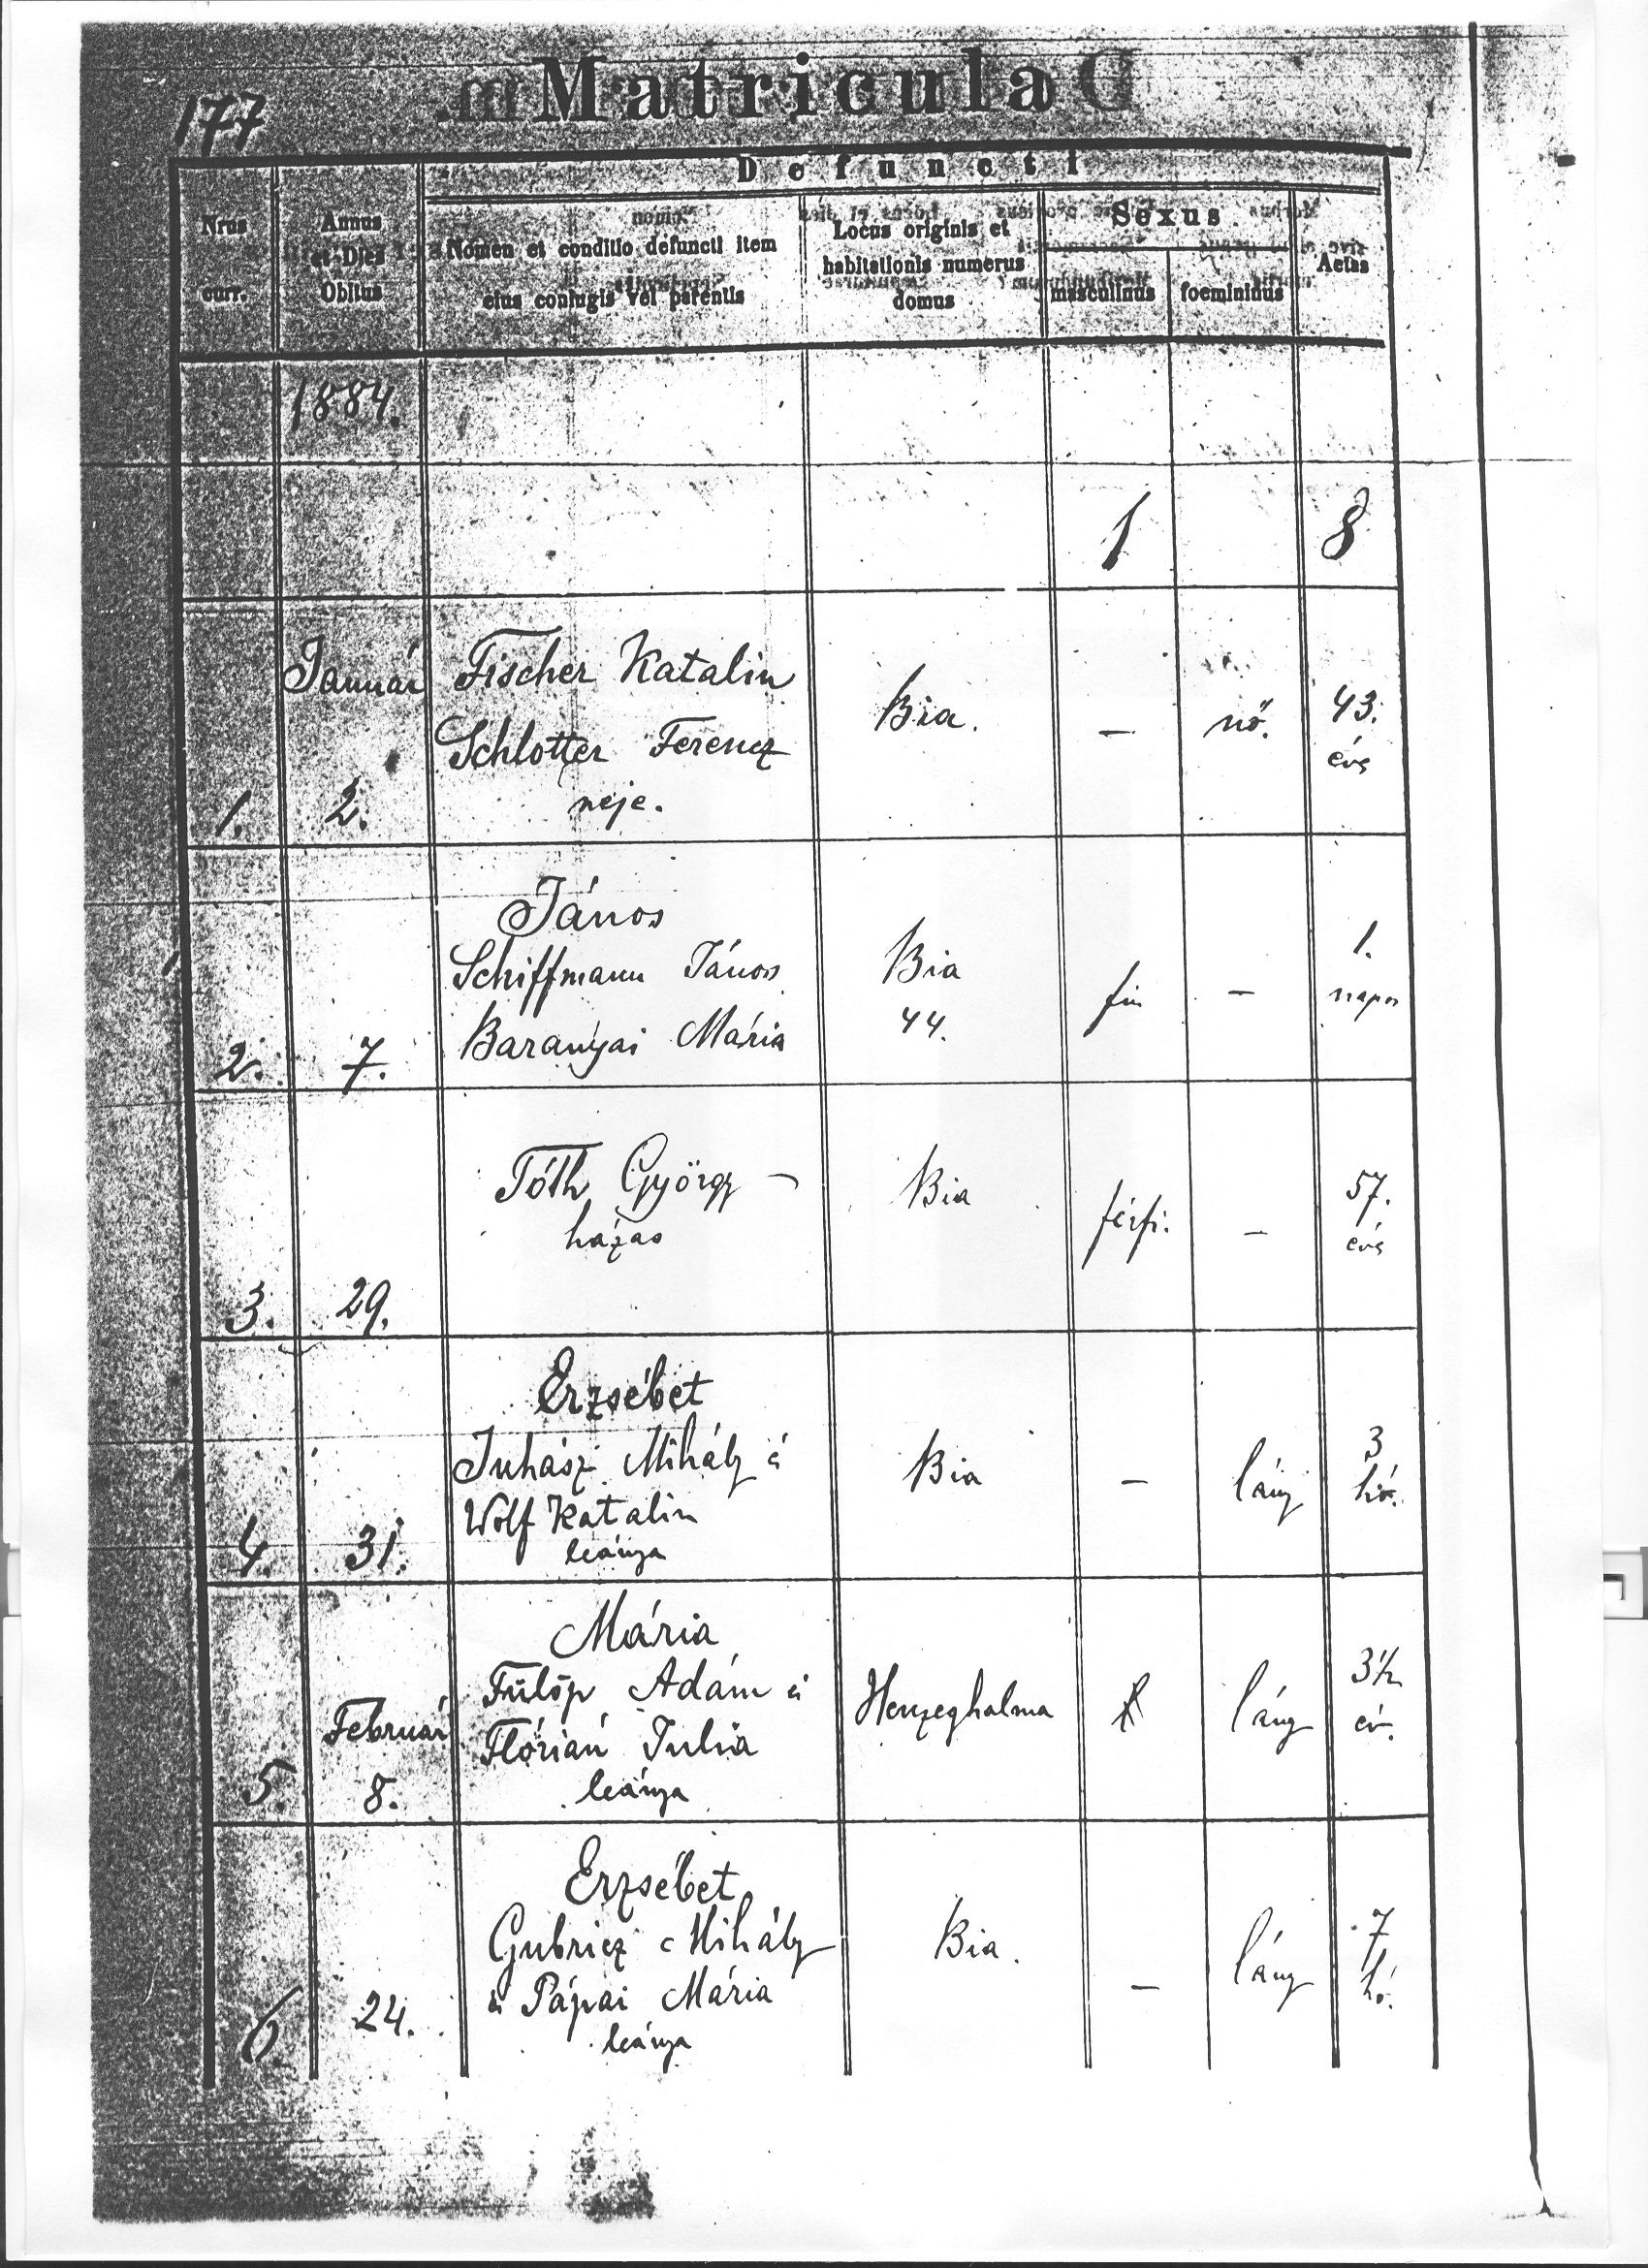 177
Matricula
Defuncti
Nrus
curr.
Annus
et Dies
Obitus
Nomen et conditio defuncti item
eius coniugis vel parentis
Locus originis et
habitationis numerus
domus
Sexus
masculinus
foemininus
Aetas
1884.
1
8
Január
Fischer Katalin
Schlotter Ferencz
neje.
Bia.
—
nő.
43.
éves
1.
2.
János
Schiffmann János
Baranyai Mária
Bia
44.
fiu
—
1.
napos
2.
7.
Tóth György —
házas
Bia
férfi.
—
57.
éves
3.
29.
Erzsébet
Juhász Mihály é
Wolf Katalin
leánya
Bia
—
lány
3
hó.
4.
31.
Mária
Fülöp Adám és
Flórián Julia
leánya
Herczeghalma
lány
3½
év.
Február
5.
8.
Erzsébet
Gubricz Mihály
és Pápai Mária
leánya
Bia.
—
lány
7
hó.
6.
24.